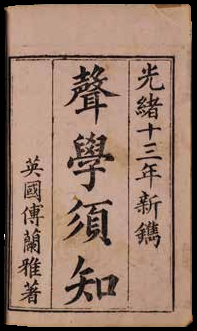 光緒十三年新鐫
聲學須知
英國傅蘭雅著